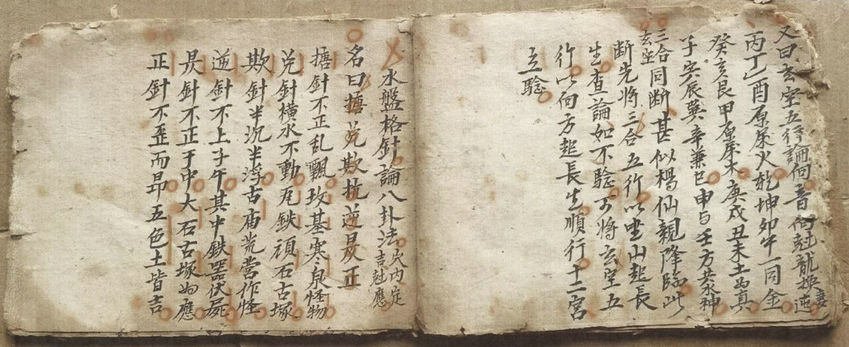 又曰玄空五行論何音何尅龍
丙丁乙酉原屬火乾坤卯午一同金
癸亥艮甲原屬木庚戌丑未土為真
子寅辰巽辛兼巳申与壬方共水神
三合玄空同断甚似楊仙親降臨此
断先將三合五行以坐山起長
生查論如不驗方將玄空五
行以何方起長生順行十二宮
立驗
水盤格針論八卦法穴内定吉尅應
名曰搪兑欺抗逆㫷正
搪針不正乱飄玫基寒泉怪物
兑針横水不動瓦鉄頑石古塚
欺針半沉半浮古庙荒营作怪
逆針不上子午其中鉄器伏屍
㫷針不正于中大石古塚为應
正針不歪而昂五色土皆吉